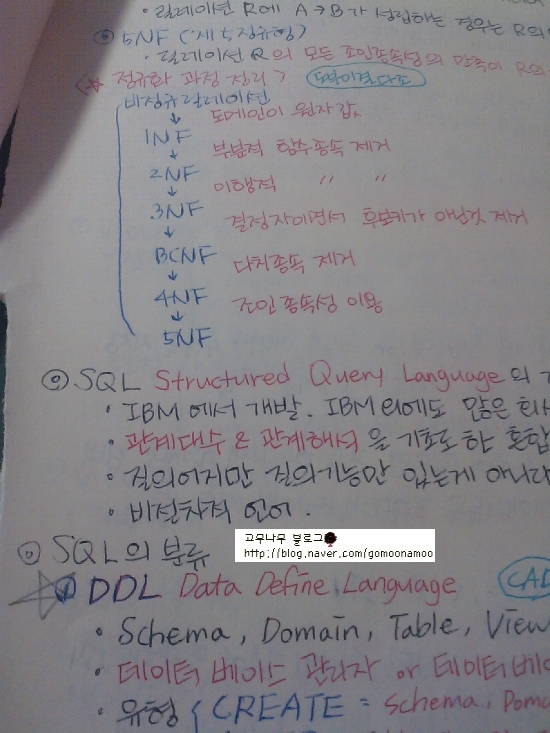 · 릴레이션 R에 A→B가 성립하는 경우는 R의
⑤ 5NF (제5정규형)
· 릴레이션 R의 모든 조인종속성의 만족이 R의
<★ 정규화 과정 정리> 도부이결다조
비정규릴레이션
↓ 도메인이 원자값
1NF
↓ 부분적 함수종속 제거
2NF
↓ 이행적 〃 〃
3NF
↓ 결정자이면서 후보키가 아닌것 제거
BCNF
↓ 다치종속 제거
4NF
↓ 조인종속성 이용
5NF
SQL Structured Query Language의
· IBM에서 개발. IBM 외에도 많은 회사
· 관계대수 & 관계해석을 기초로 한 혼합
· 질의어지만 질의기능만 있는게 아니라
· 비절차적 언어.
고무나무 블로그
http://blog.naver.com/gomoonamoo
SQL의 분류
DDL Data Define Language
· Schema, Domain, Table, View
· 데이터 베이스 관리자 or 데이터베이
· 유형 { CREATE = Schema, Doma